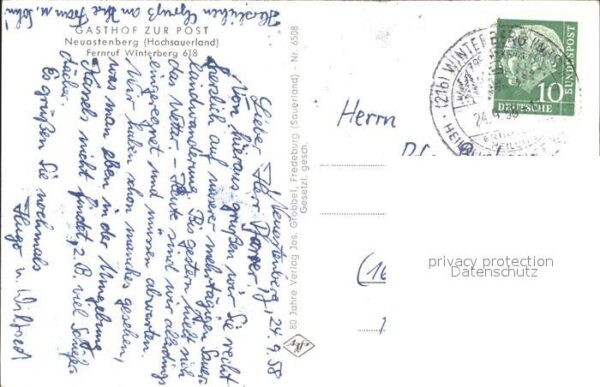 Herzlichen Gruß an Ihre Frau u. Sohn!
GASTHOF ZUR POST
Neuastenberg (Hochsauerland)
Fernruf Winterberg 618
Neuastenberg, 24.9.58
Lieber Herr Pfarrer!
Von hieraus grüßen wir Sie recht
herzlich auf unserer mehrtägigen Sauer-
landwanderung. Bis gestern hielt sich
das Wetter – Heute sind wir allerdings
eingeregnet und müssen abwarten.
Wir haben schon manches gesehen,
was man eben in der Umgebung
Kassels nicht findet, z.B. viel Schiefer-
dächer.
Es grüßen Sie nochmals
Hugo u. Wilfried
80 Jahre Verlag Jos. Grobbel, Fredeburg (Sauerland) Nr. 6508
Gesetzl. gesch.
Herrn
(16
(21b) WINTERBERG
24.9.58
DEUTSCHE
BUNDESPOST
10
privacy protection
Datenschutz